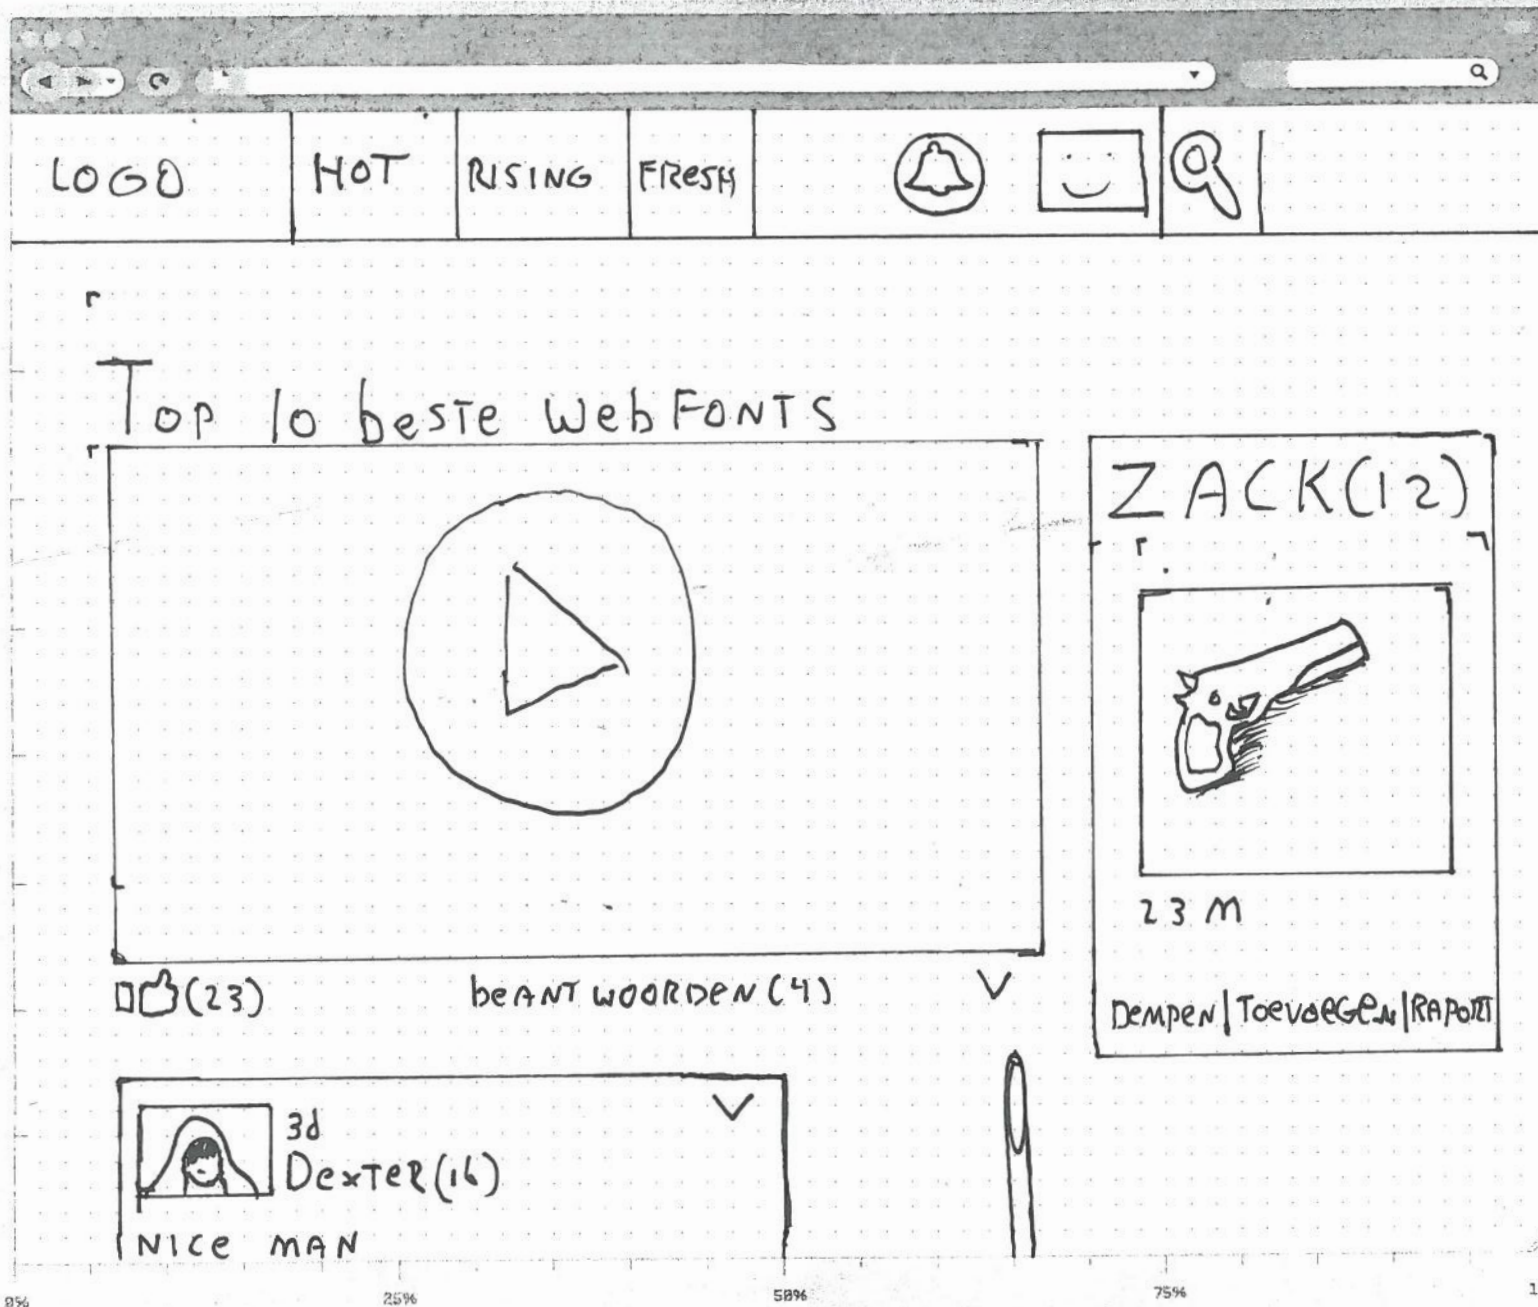 LOGO HOT RISING FRESH
Top 10 beste webFONTS
ZACK(12)
23 M
(23) beANTWOORDEN(4)
Dempen|Toevoegen|RAPORT
3d
Dexter(16)
NICe MAN
0% 25% 50% 75% 1